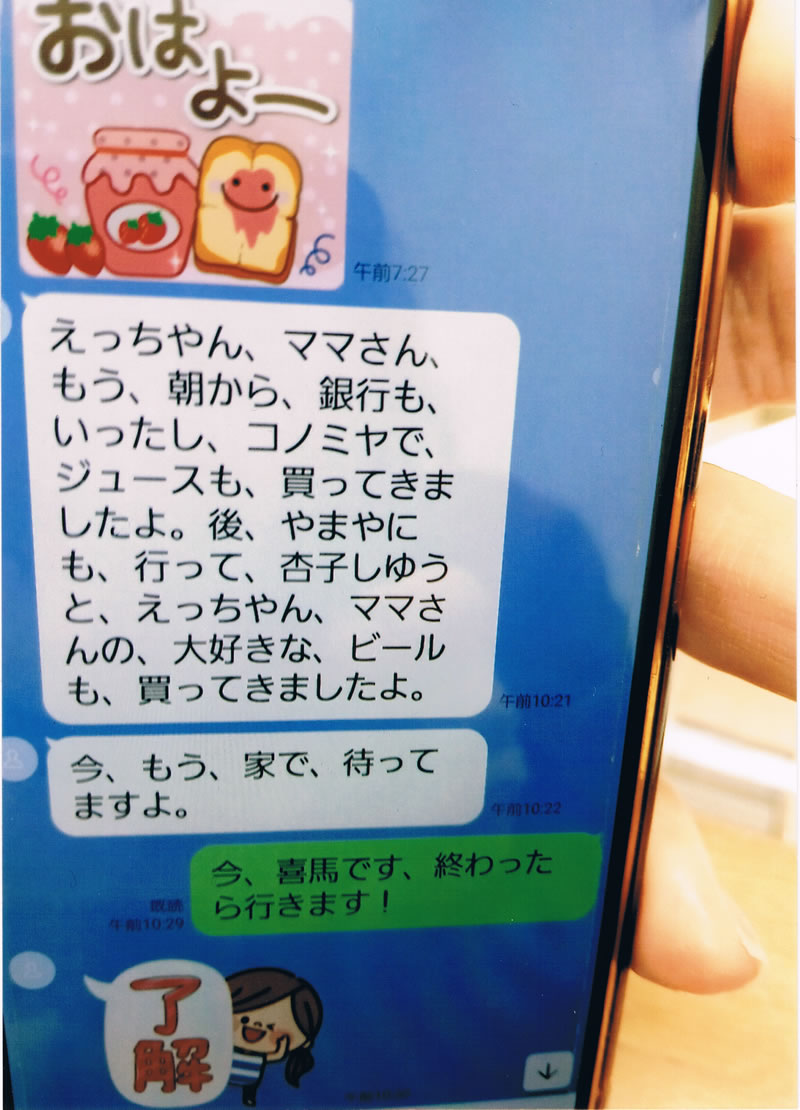 おはよー
午前7:27
えっちやん、ママさん、
もう、朝から、銀行も、
いったし、コノミヤで、
ジュースも、買ってきま
したよ。後、やまやに
も、行って、杏子しゆう
と、えっちやん、ママさ
んの、大好きな、ビール
も、買ってきましたよ。
午前10:21
今、もう、家で、待って
ますよ。
午前10:22
今、喜馬です、終わった
ら行きます！
既読
午前10:29
了解